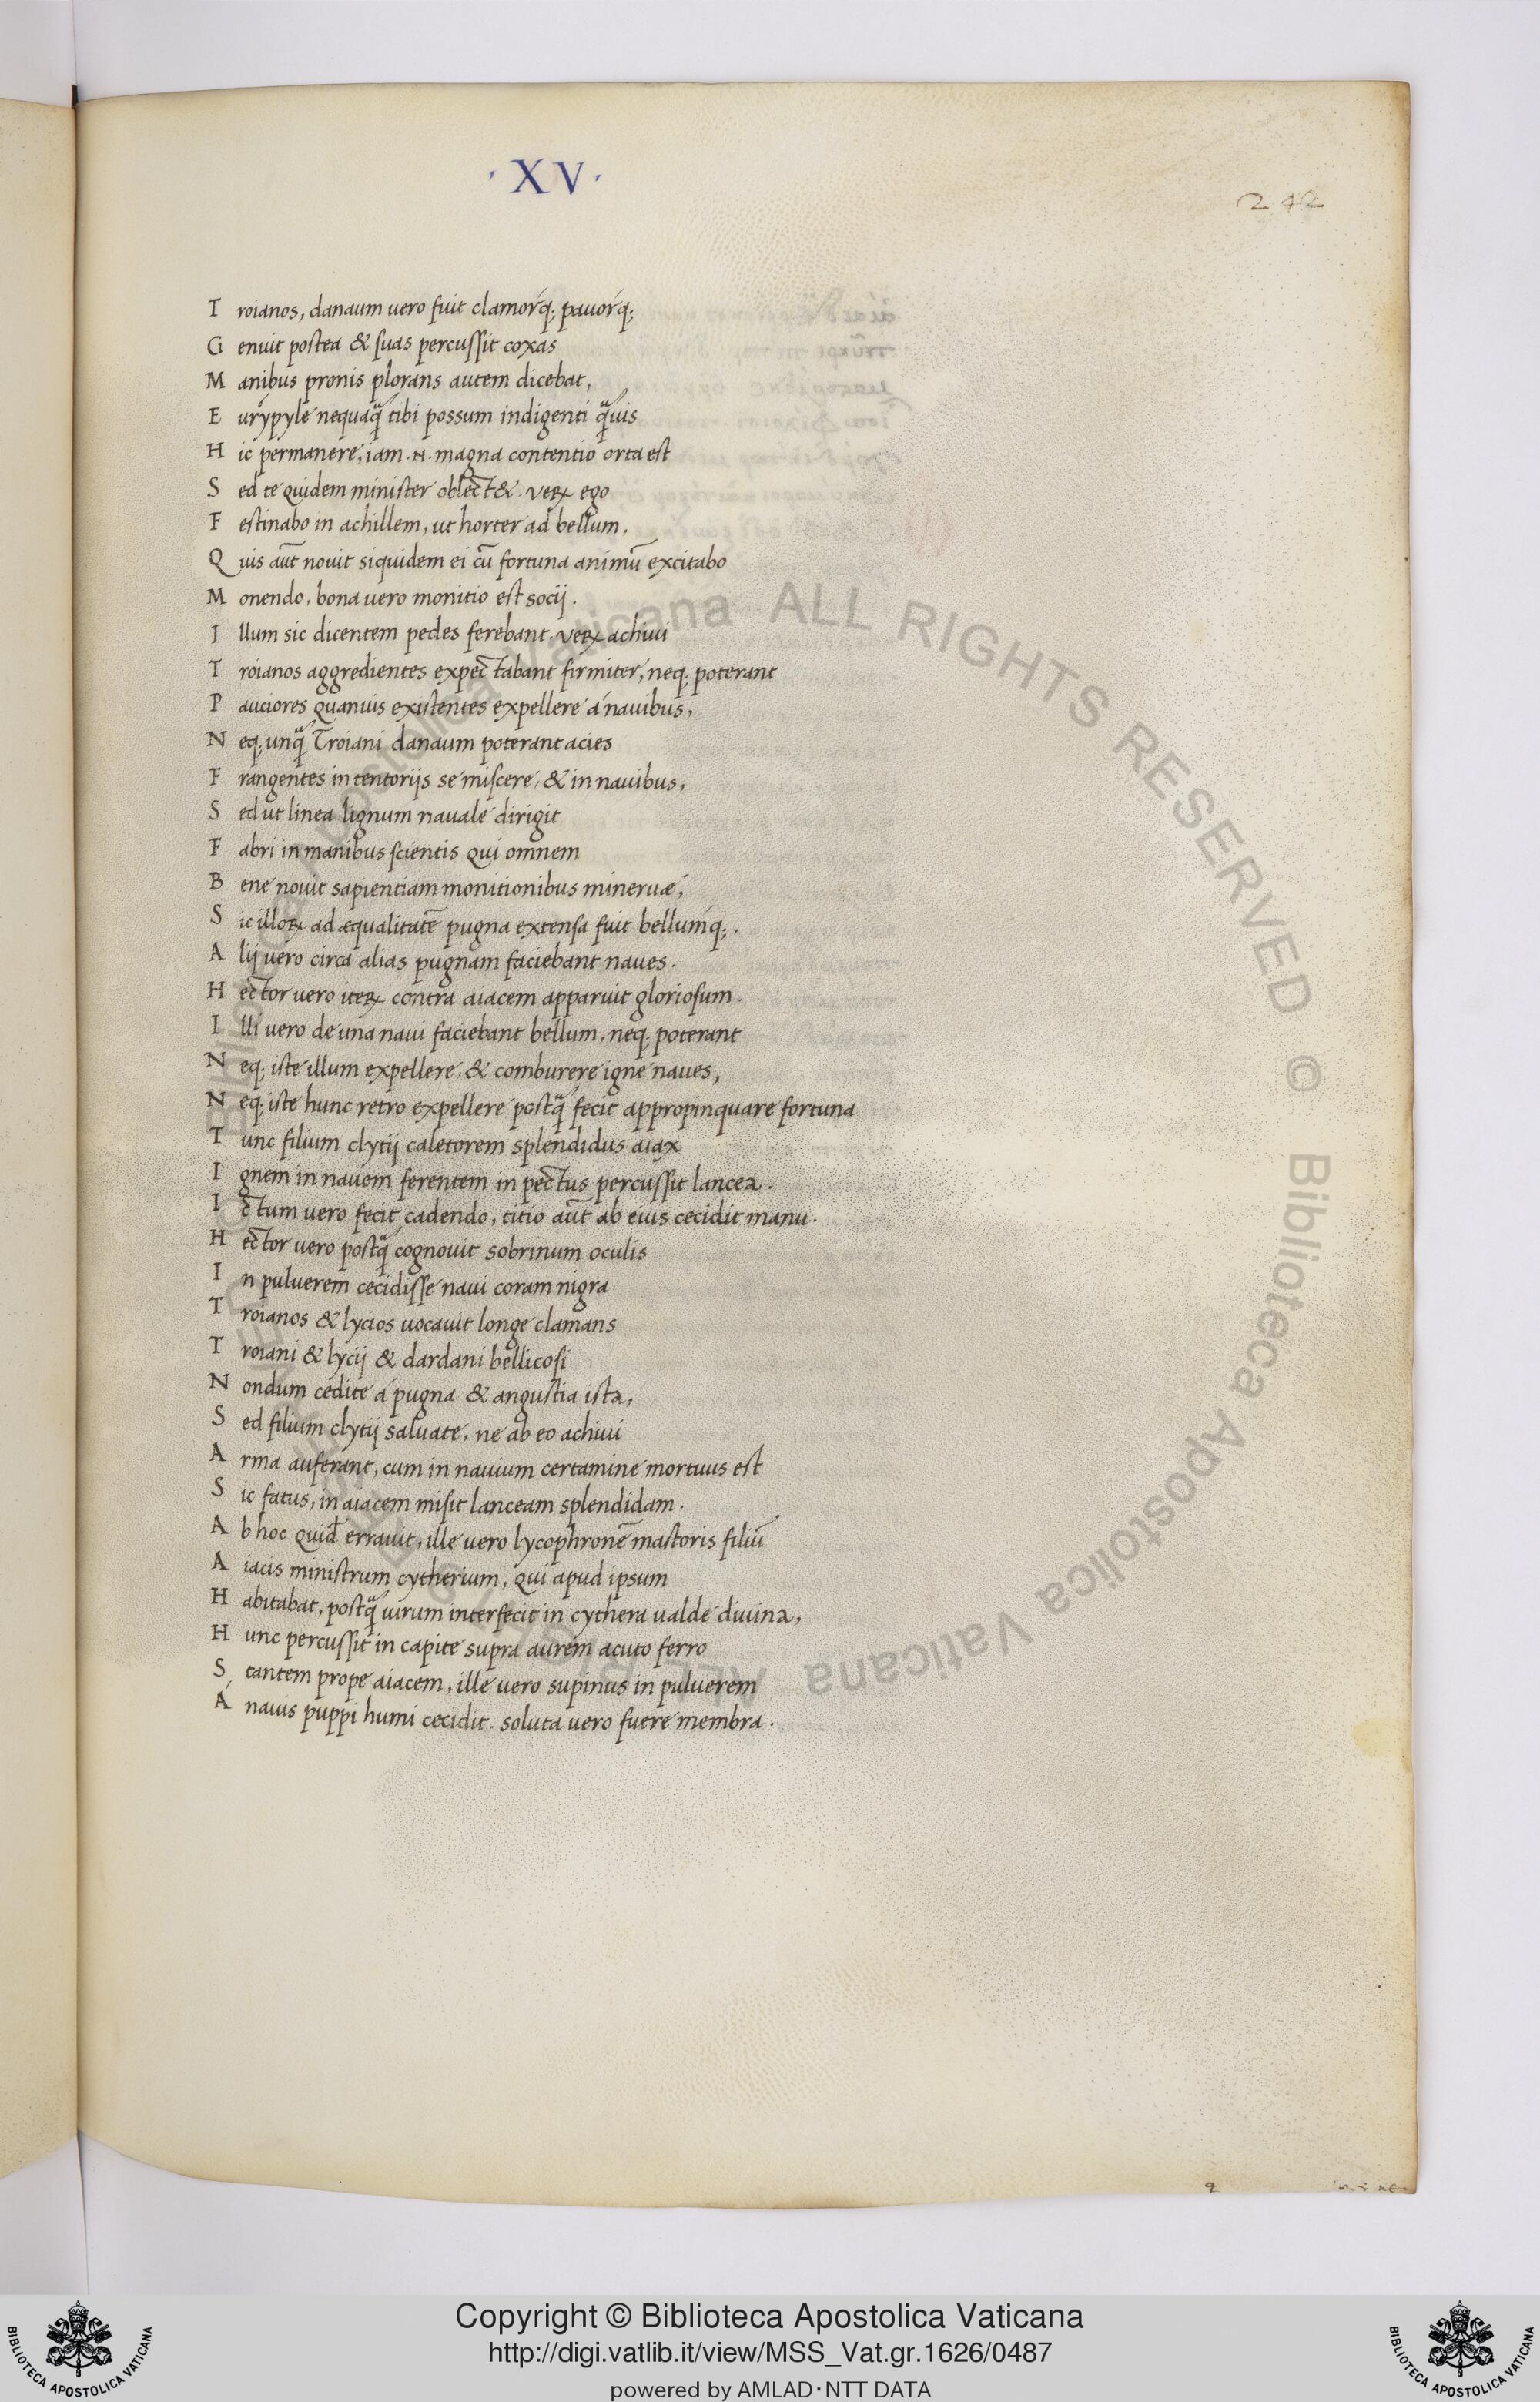 · XV ·
242
T roianos, danaum uero fuit clamorq́; pauorq́;
G enuit postea & suas percussit coxas
M anibus pronis plorans autem dicebat,
E urypyle nequaq̃ tibi possum indigenti q̃uis
H ic permanere, iam .N. magna contentio orta est
S ed te quidem minister oblect&. veꝝ ego
F estinabo in achillem, ut horter ad bellum.
Q uis aut̃ nouit siquidem ei cũ fortuna animũ excitabo
M onendo. bona uero monitio est socij.
I llum sic dicentem pedes ferebant. veꝝ achiui
T roianos aggredientes expectabant firmiter, neq; poterant
P auciores quanuis existentes expellere á nauibus,
N eq; unq̃ Troiani danaum poterant acies
F rangentes in tentorijs se miscere, & in nauibus,
S ed ut linea lignum nauale dirigit
F abri in manibus scientis qui omnem
B ene nouit sapientiam monitionibus mineruæ,
S ic illoꝝ ad æqualitatẽ pugna extensa fuit bellumq́;.
A lij uero circa alias pugnam faciebant naues.
H ector uero iteꝝ contra aiacem apparuit gloriosum.
I lli uero de una naui faciebant bellum, neq; poterant
N eq; iste illum expellere, & comburere igne naues,
N eq; iste hunc retro expellere postq̃ fecit appropinquare fortuna
T unc filium clytij caletorem splendidus aiax
I gnem in nauem ferentem in pectus percussit lancea.
I ctum uero fecit cadendo, titio aut̃ ab eius cecidit manu.
H ector uero postq̃ cognouit sobrinum oculis
I n puluerem cecidisse naui coram nigra
T roianos & lycios uocauit longe clamans
T roiani & lycij & dardani bellicosi
N ondum cedite á pugna & angustia ista,
S ed filium clytij saluate, ne ab eo achiui
A rma auferant, cum in nauium certamine mortuus est
S ic fatus, in aiacem misit lanceam splendidam.
A b hoc quid̃ errauit, ille uero lycophronẽ mastoris filiũ
A iacis ministrum cytherium, qui apud ipsum
H abitabat, postq̃ uirum interfecit in cythera ualde diuina,
H unc percussit in capite supra aurem acuto ferro
S tantem prope aiacem, ille uero supinus in puluerem
Á nauis puppi humi cecidit. soluta uero fuere membra.
Biblioteca Apostolica Vaticana ALL RIGHTS RESERVED © Biblioteca Apostolica Vaticana ALL RIGHTS RESERVED ©
Copyright © Biblioteca Apostolica Vaticana
http://digi.vatlib.it/view/MSS_Vat.gr.1626/0487
powered by AMLAD·NTT DATA
BIBLIOTECA APOSTOLICA VATICANA
BIBLIOTECA APOSTOLICA VATICANA